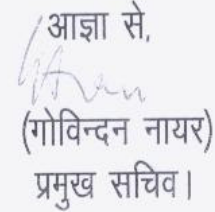 आज्ञा से,
(गोविन्दन नायर)
प्रमुख सचिव।